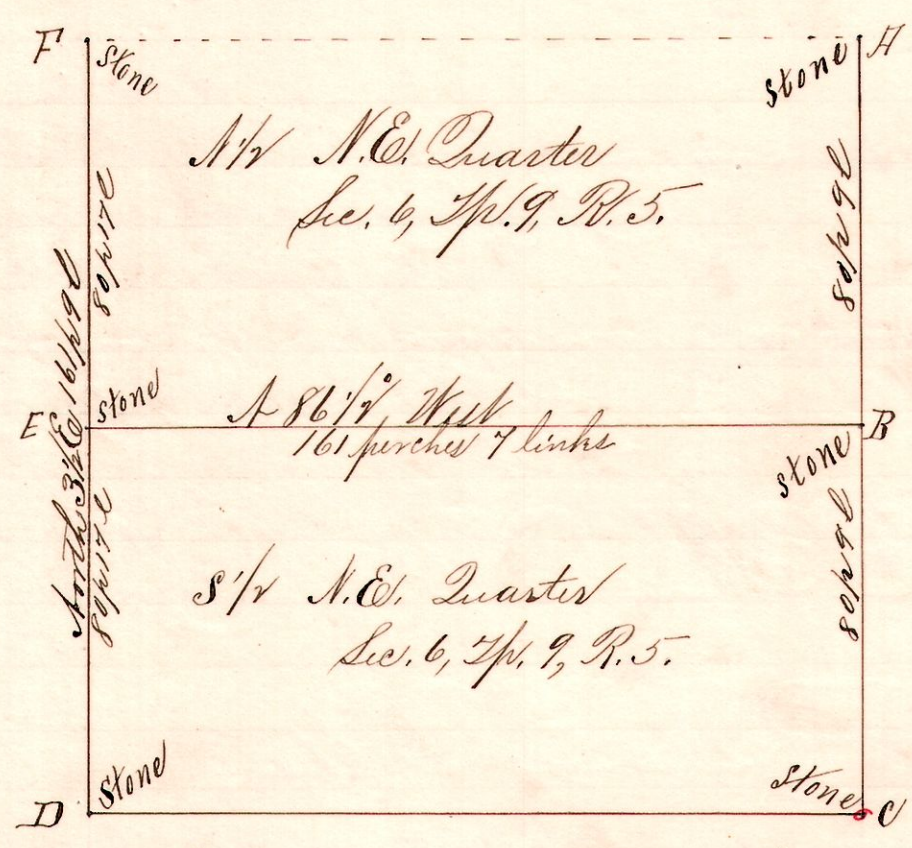 F
Stone
Stone
A
N 1/2 N.E. Quarter
Sec. 6, Tp. 9, R. 5.
80p 17l
80p 9l
North 3 1/2 E 161p 9l
E
Stone
N 86 1/2° West
161 perches 7 links
B
Stone
80p 17l
80p 9l
S 1/2 N.E. Quarter
Sec. 6, Tp. 9, R. 5.
D
Stone
Stone
C